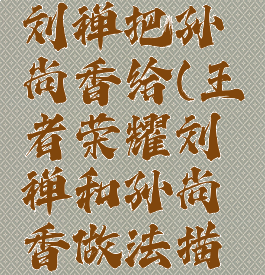 刘禅把孙
尚香给(王
者荣耀刘
禅和孙尚
香做法描